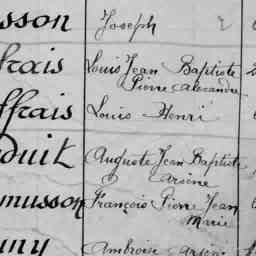 sson Joseph 2
frais Louis Jean Baptiste
Pierre Alexandre
ffrais Louis Henri
duit Auguste Jean Baptiste
Arsène
musson François Pierre Jean
Marie
uny Ambroise Arsène